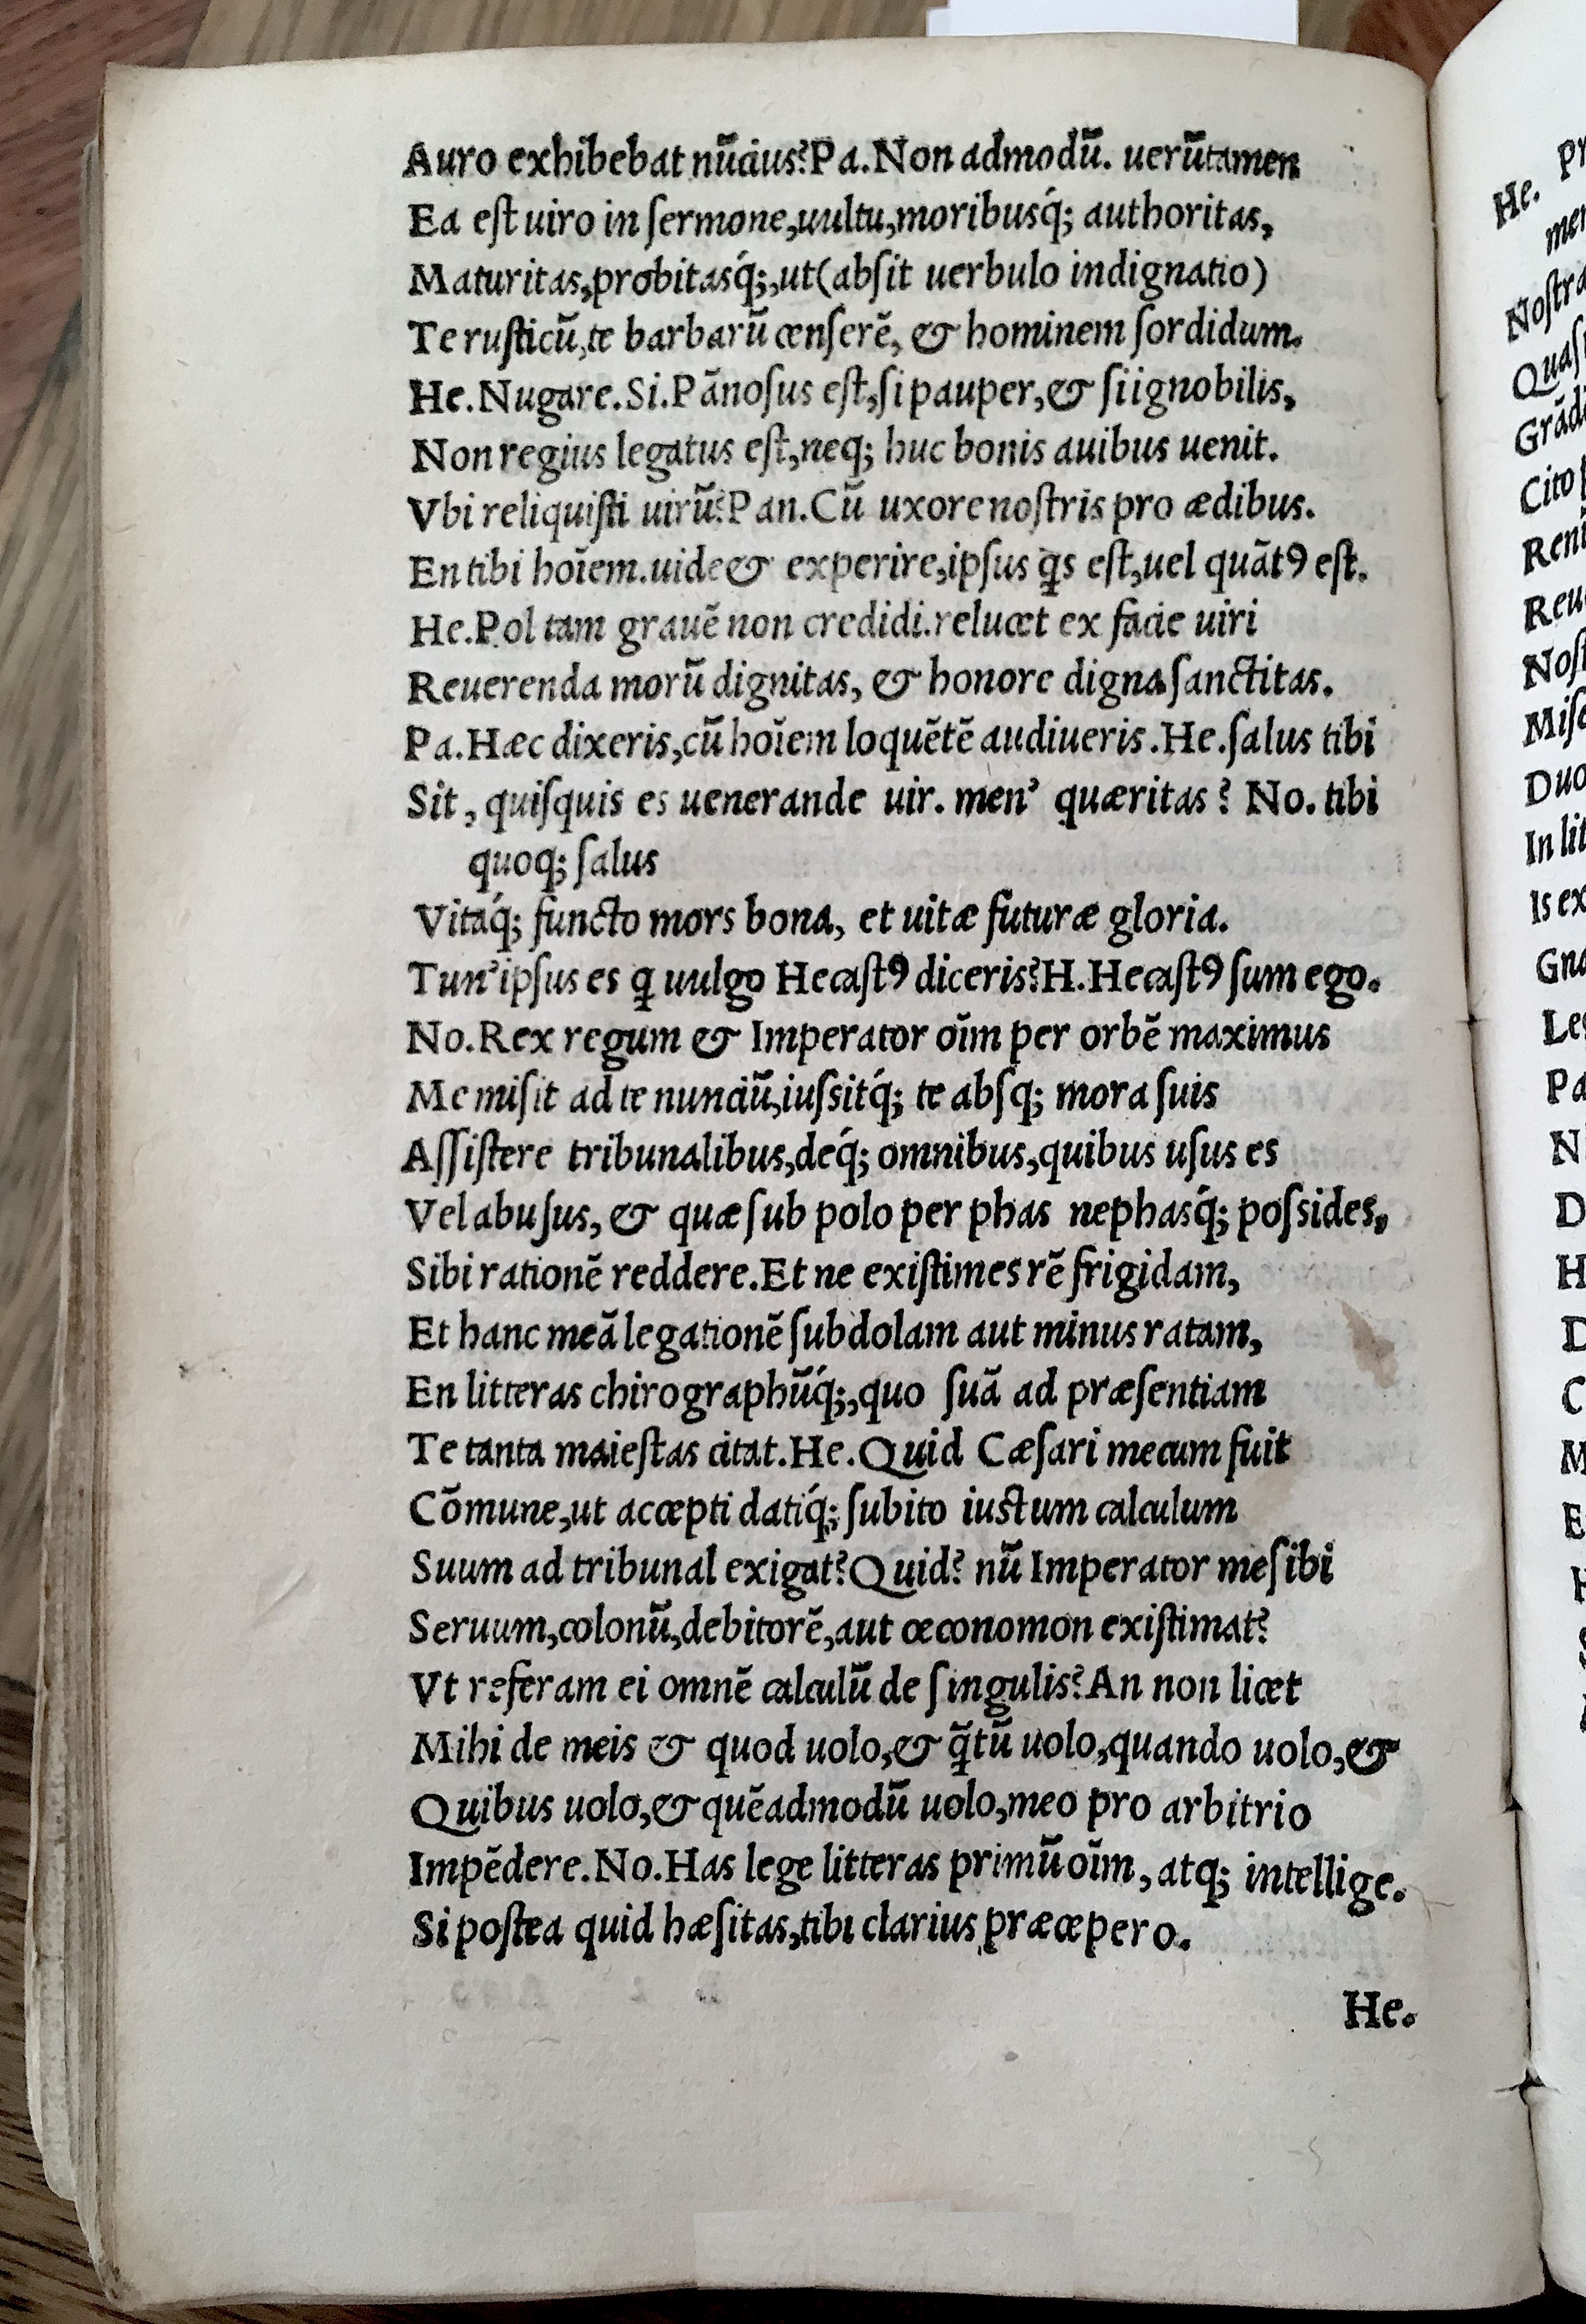 Auro exhibebat nũcius? Pa. Non admodũ. uerũtamen
Ea eſt uiro in ſermone, uultu, moribusq́; authoritas,
Maturitas, probitasq́;, ut (abſit uerbulo indignatio)
Te ruſticũ, te barbarũ cenſerẽ, & hominem ſordidum.
He. Nugare. Si. Pãnoſus eſt, ſi pauper, & ſi ignobilis,
Non regius legatus eſt, neq; huc bonis auibus uenit.
Vbi reliquiſti uirũ? Pan. Cũ uxore noſtris pro ædibus.
En tibi hoĩem. uide & experire, ipſus q̃s eſt, uel quãtꝰ eſt.
He. Pol tam grauẽ non credidi. relucet ex facie uiri
Reuerenda morũ dignitas, & honore digna ſanctitas.
Pa. Hæc dixeris, cũ hoĩem loquẽtẽ audiueris. He. ſalus tibi
Sit, quiſquis es uenerande uir. men’ quæritas? No. tibi
quoq; ſalus
Vitaq́; functo mors bona, et uitæ futuræ gloria.
Tun’ ipſus es q uulgo Hecaſtꝰ diceris? H. Hecaſtꝰ ſum ego.
No. Rex regum & Imperator oĩm per orbẽ maximus
Me miſit ad te nunciũ, iuſsitq́; te abſq; mora ſuis
Aſſiſtere tribunalibus, deq́; omnibus, quibus uſus es
Vel abuſus, & quæ ſub polo per phas nephasq́; poſsides,
Sibi rationẽ reddere. Et ne exiſtimes rẽ frigidam,
Et hanc meã legationẽ ſubdolam aut minus ratam,
En litteras chirographũq́;, quo ſuã ad præſentiam
Te tanta maieſtas citat. He. Quid Cæſari mecum fuit
Cõmune, ut accepti datiq́; ſubito iuſtum calculum
Suum ad tribunal exigat? Quid? nũ Imperator me ſibi
Seruum, colonũ, debitorẽ, aut œconomon exiſtimat?
Vt referam ei omnẽ calculũ de ſingulis? An non licet
Mihi de meis & quod uolo, & q̃tũ uolo, quando uolo, &
Quibus uolo, & quẽadmodũ uolo, meo pro arbitrio
Impẽdere. No. Has lege litteras primũ oĩm, atq; intellige.
Si poſtea quid hæſitas, tibi clarius præcepero.
He.